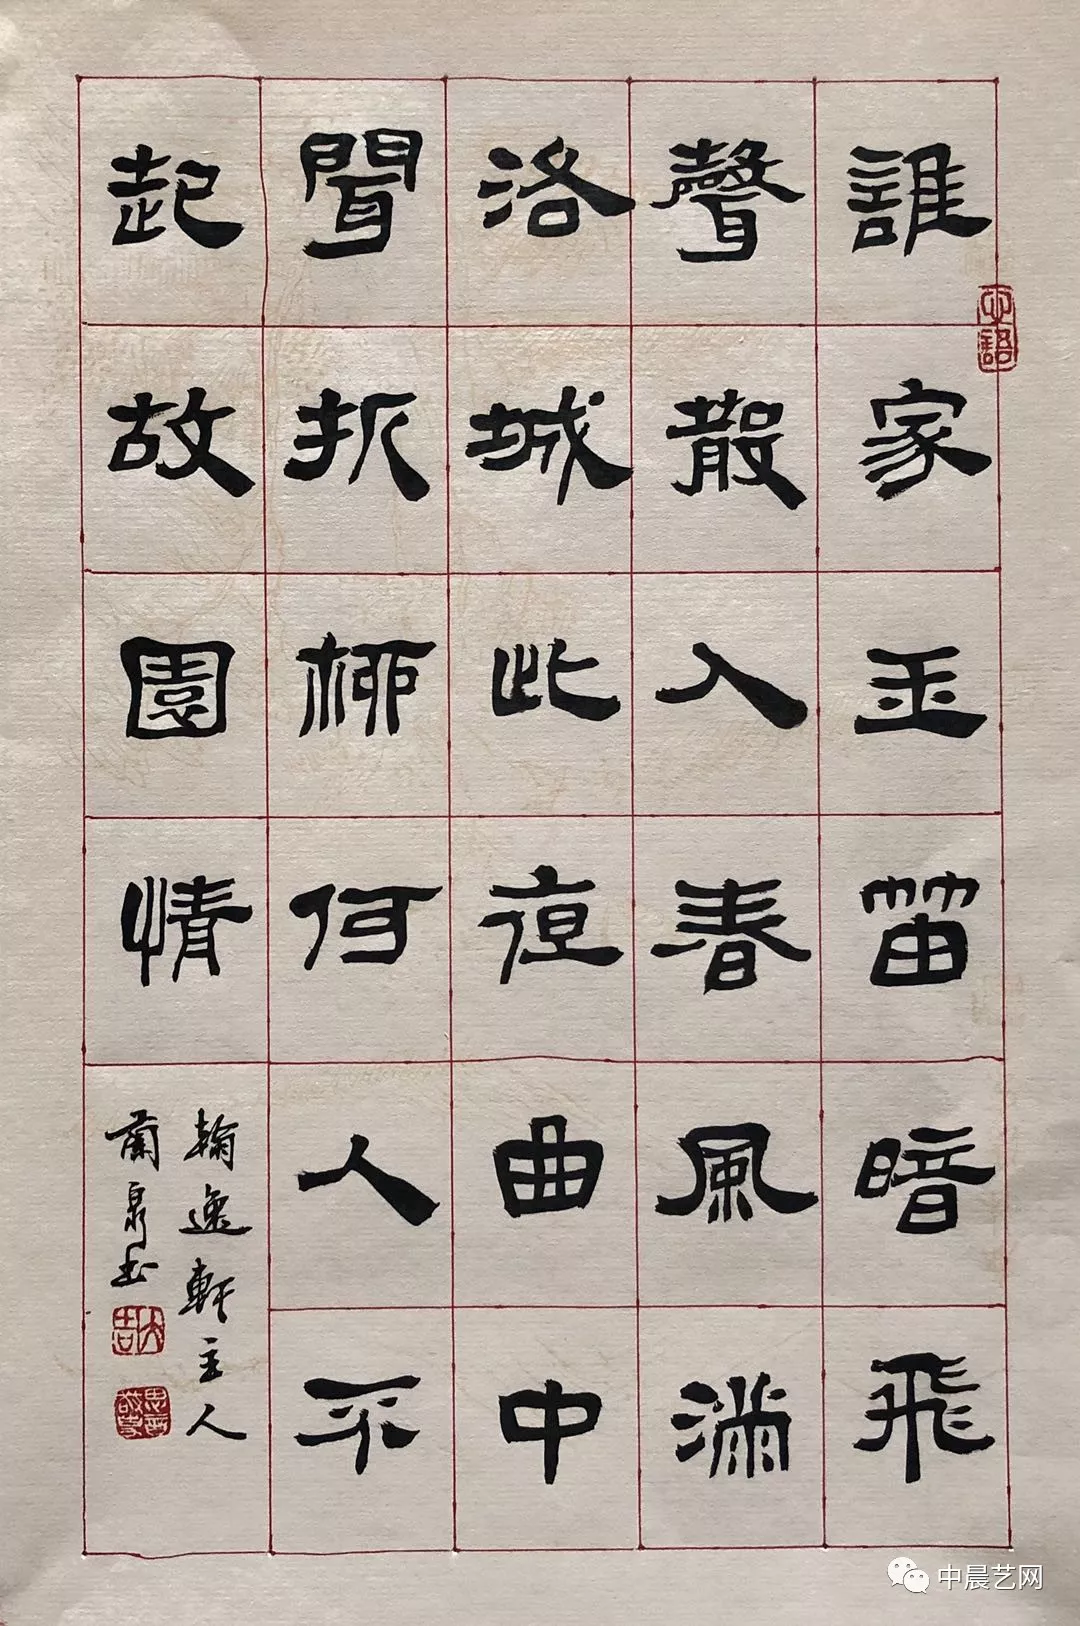 誰家玉笛暗飛
聲散入春風滿
洛城此夜曲中
聞折柳何人不
起故園情
翰逸軒主人
蘭泉书
心語
中晨艺网